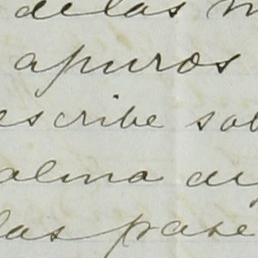 de las m
apuros
escribe sob
alma
las pase